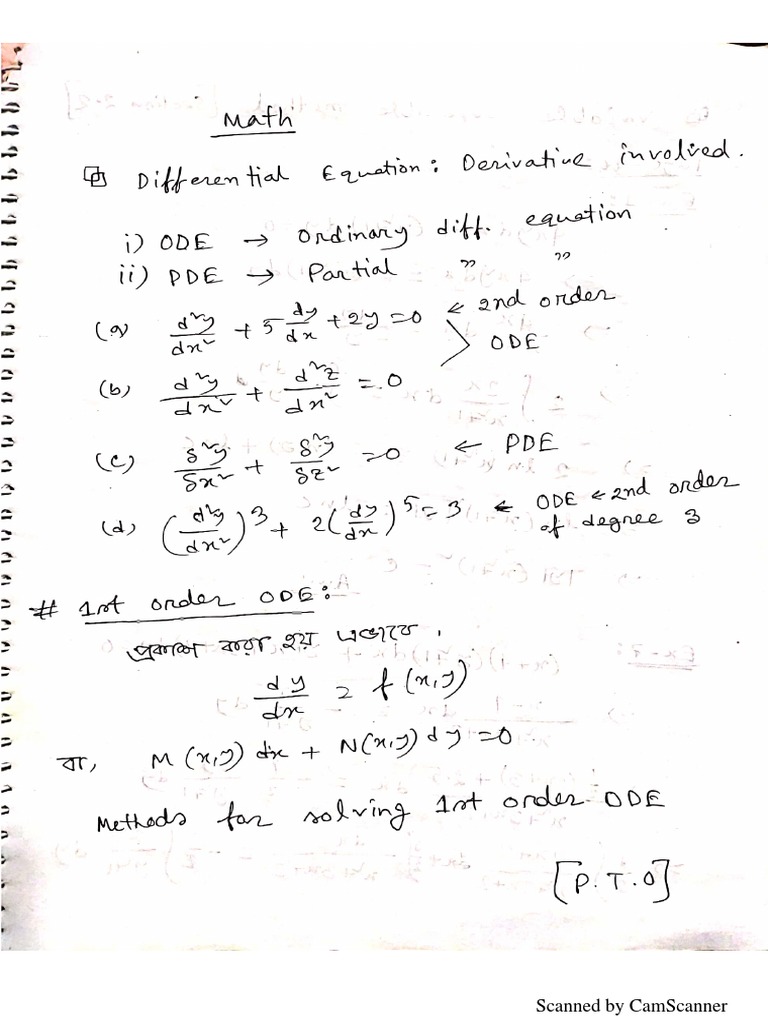 Math
Differential Equation: Derivative involved.
i) ODE → Ordinary diff. equation
ii) PDE → Partial " "
(a) d²y/dx² + 5 dy/dx + 2y = 0 ← 2nd order
ODE
(b) d²y/dx² + d²z/dx² = 0
(c) δ²y/δx² + δ²y/δz² = 0 ← PDE
(d) (d²y/dx²)³ + 2(dy/dx)⁵ = 3 ← ODE ← 2nd order
of degree 3
# 1st order ODE:
প্রকাশ করা হয় এভাবে,
dy/dx = f(x,y)
বা, M(x,y) dx + N(x,y) dy = 0
Methods for solving 1st order ODE
[P.T.O]
Scanned by CamScanner